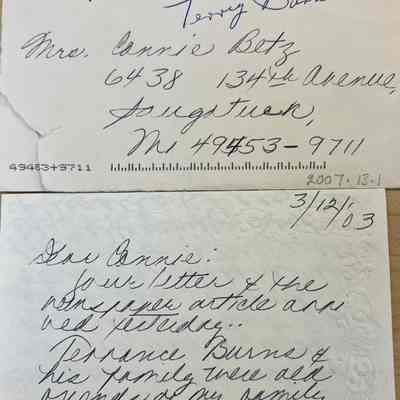 Terry Burn
Mrs. Connie Betz
6438 134th Avenue,
Saugatuck,
Mi 49453-9711
49453+9711
2007.13.1
3/12/'03
Dear Connie:
Your letter & the
newspaper article arri
ved yesterday..
Terrance Burns &
his family were old
friends of my family